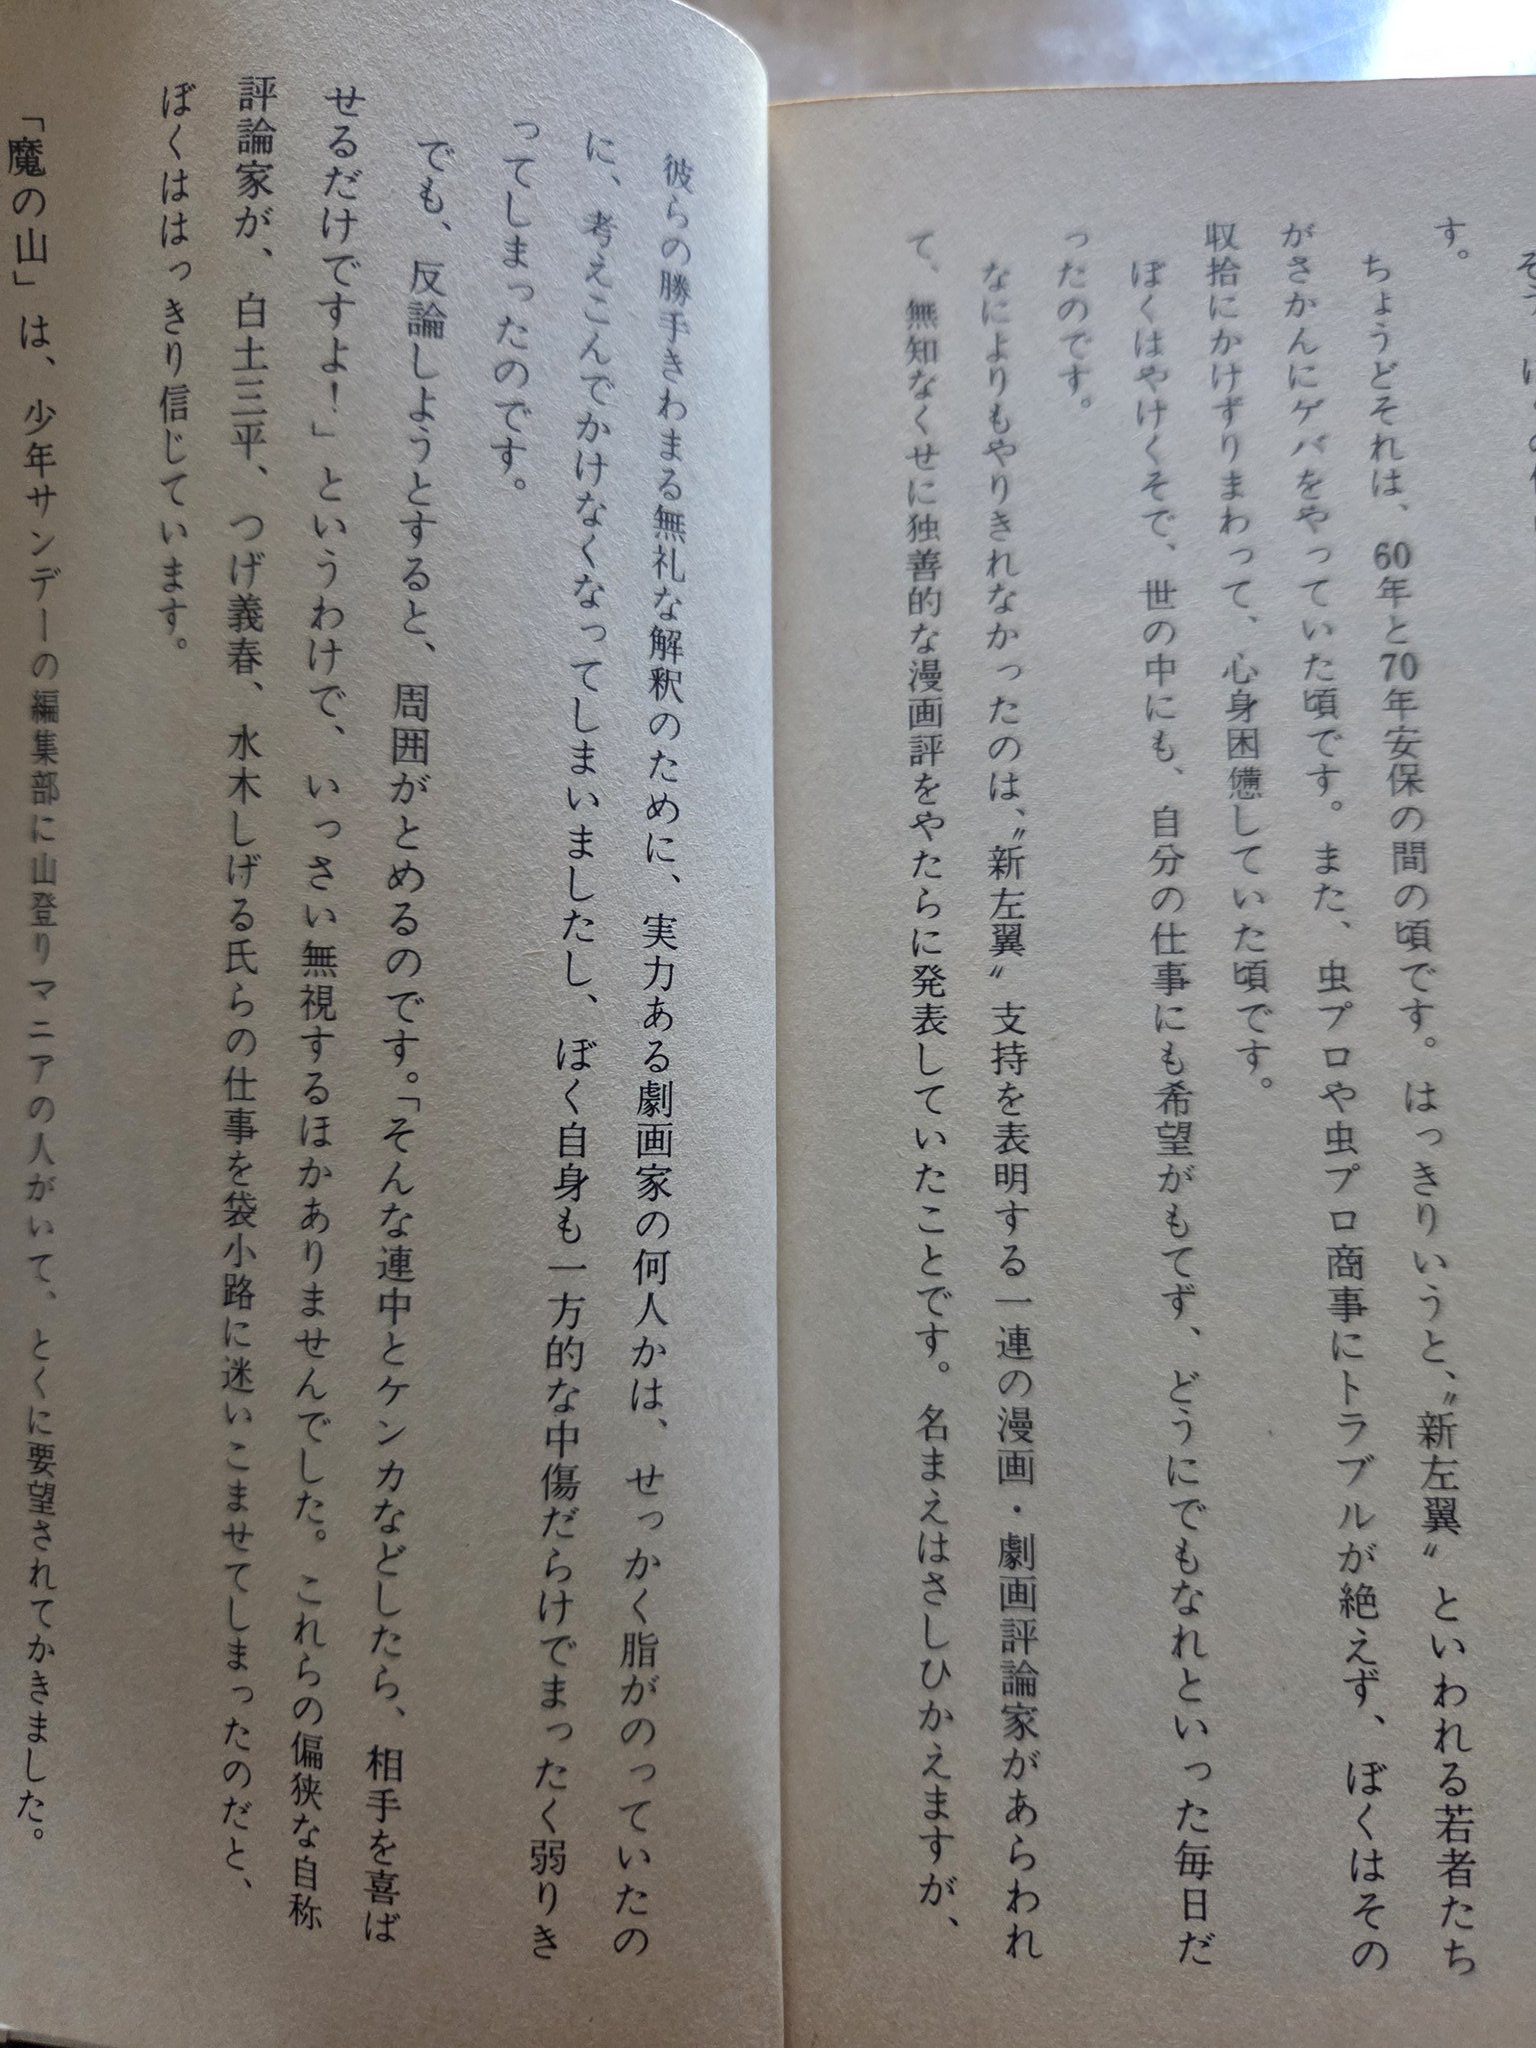 す。
　ちょうどそれは、60年と70年安保の間の頃です。はっきりいうと、〝新左翼〟といわれる若者たち
がさかんにゲバをやっていた頃です。また、虫プロや虫プロ商事にトラブルが絶えず、ぼくはその
収拾にかけずりまわって、心身困憊していた頃です。
　ぼくはやけくそで、世の中にも、自分の仕事にも希望がもてず、どうにでもなれといった毎日だ
ったのです。
　なによりもやりきれなかったのは、〝新左翼〟支持を表明する一連の漫画・劇画評論家があらわれ
て、無知なくせに独善的な漫画評をやたらに発表していたことです。名まえはさしひかえますが、
彼らの勝手きわまる無礼な解釈のために、実力ある劇画家の何人かは、せっかく脂がのっていたの
に、考えこんでかけなくなってしまいましたし、ぼく自身も一方的な中傷だらけでまったく弱りき
ってしまったのです。
　でも、反論しようとすると、周囲がとめるのです。「そんな連中とケンカなどしたら、相手を喜ば
せるだけですよ！」というわけで、いっさい無視するほかありませんでした。これらの偏狭な自称
評論家が、白土三平、つげ義春、水木しげる氏らの仕事を袋小路に迷いこませてしまったのだと、
ぼくははっきり信じています。
「魔の山」は、少年サンデーの編集部に山登りマニアの人がいて、とくに要望されてかきました。